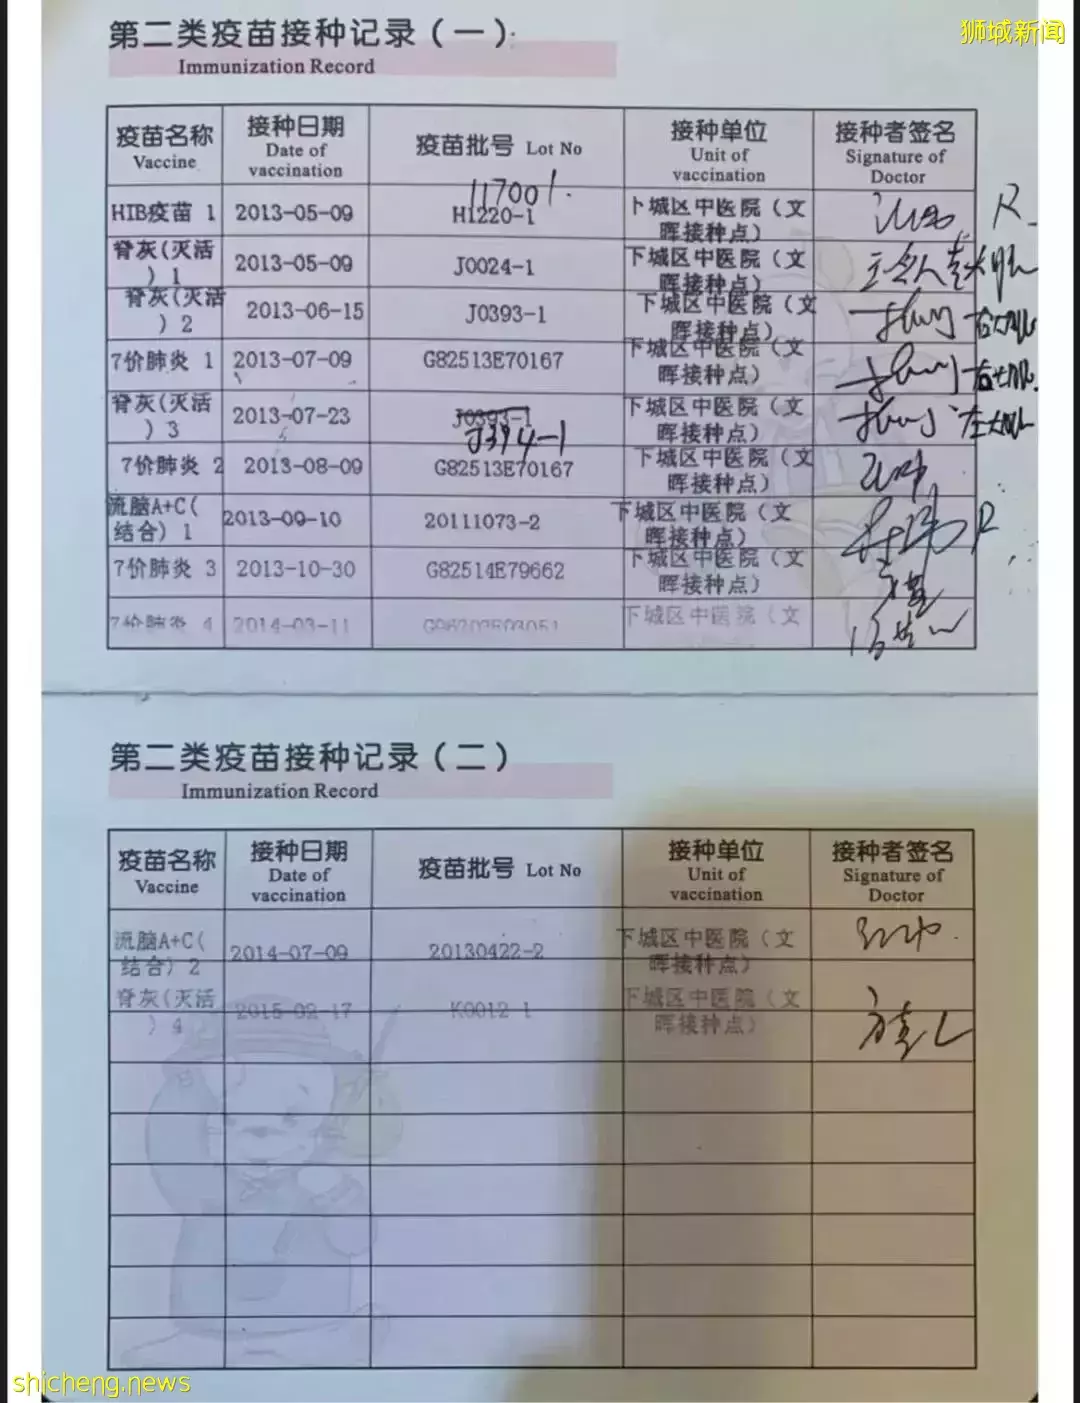 第二类疫苗接种记录（一）
狮城新闻
Immunization Record
疫苗名称 接种日期 疫苗批号 Lot No 接种单位 接种者签名
Vaccine Date of vaccination Unit of vaccination Signature of Doctor
117001
HIB疫苗 1 2013-05-09 H1220-1 下城区中医院（文 R
晖接种点）
脊灰(灭活 2013-05-09 J0024-1 下城区中医院（文
）1 晖接种点）
脊灰(灭活 2013-06-15 J0393-1 下城区中医院（文
）2 晖接种点）
7价肺炎 1 2013-07-09 G82513E70167 下城区中医院（文
晖接种点）
脊灰(灭活 2013-07-23 J0393-1 下城区中医院（文
）3 J394-1 晖接种点）
7价肺炎 2 2013-08-09 G82513E70167 下城区中医院（文
晖接种点）
流脑A+C( 2013-09-10 20111073-2 下城区中医院（文 R
结合）1 晖接种点）
7价肺炎 3 2013-10-30 G82514E79662 下城区中医院（文
晖接种点）
7价肺炎 4 2014-03-11 下城区中医院（文
第二类疫苗接种记录（二）
Immunization Record
疫苗名称 接种日期 疫苗批号 Lot No 接种单位 接种者签名
Vaccine Date of vaccination Unit of vaccination Signature of Doctor
流脑A+C( 2014-07-09 20130422-2 下城区中医院（文
结合）2 晖接种点）
脊灰(灭活 2015-02-17 K0012-1 下城区中医院（文
）4 晖接种点）
shicheng.news